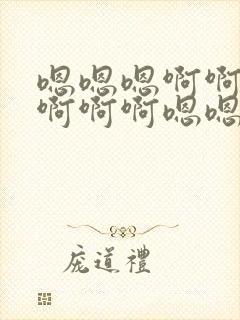 嗯嗯嗯啊啊
啊啊啊嗯嗯
庞道禮